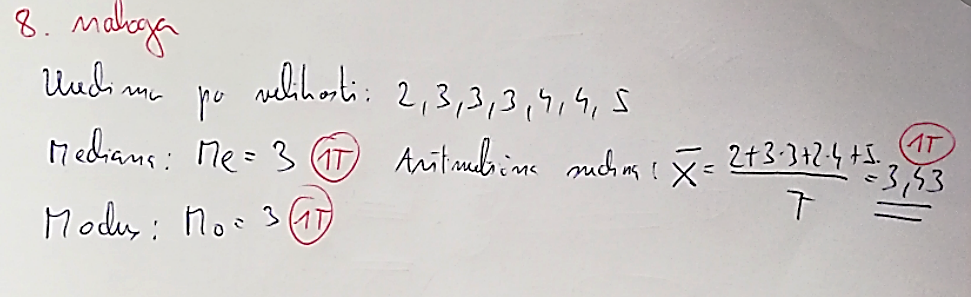 8. naloga
Uredimo po velikosti: 2, 3, 3, 3, 4, 4, 5
Mediana: Me = 3 1T Aritmetična sredina: x̄ = (2+3·3+2·4+5)/7 = 3,43 1T
Modus: Mo = 3 1T